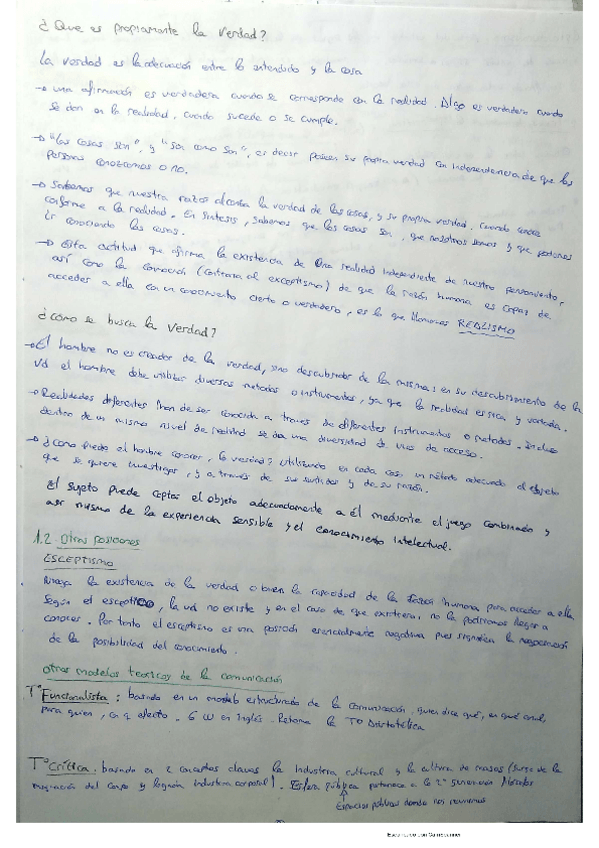 ¿Que es propiamente la Verdad?
La verdad es la adecuación entre lo entendido y la cosa
→ una afirmación es verdadera cuando se corresponde con la realidad. Algo es verdadero cuando
se da en la realidad, cuando sucede o se cumple.
→ "las cosas son", y "son como son", es decir poseen su propia verdad con independencia de que las
personas conozcamos o no.
→ Sabemos que nuestra razón alcanza la verdad de las cosas, y su propia verdad, cuando conoce
conforme a la realidad. En síntesis, sabemos que las cosas son, que nosotros somos y que podemos
ir conociendo las cosas.
→ Esta actitud que afirma la existencia de una realidad independiente de nuestro pensamiento,
así como la convicción (contraria al exceptismo) de que la razón humana es capaz de
acceder a ella con un conocimiento cierto o verdadero, es lo que llamamos REALISMO
¿Como se busca la verdad?
→ El hombre no es creador de la verdad, sino descubridor de la misma: en su descubrimiento de la
Vd el hombre debe utilizar diversos metodos o instrumentos, ya que la realidad es rica y variada.
→ Realidades diferentes han de ser conocida a traves de diferentes instrumentos o metodos. Incluso
dentro de un mismo nivel de realidad se da una diversidad de vias de acceso.
→ ¿Como puede el hombre conocer, la verdad? Utilizando en cada caso un método adecuado al objeto
que se quiere investigar, y a traves de sus sentidos y de su razón.
El sujeto puede captar el objeto adecuadamente a él mediante el juego combinado y
asi mismo de la experiencia sensible y el conocimiento intelectual.
1.2 Otras posiciones
ESCEPTISMO
Niega la existencia de la verdad o bien la capacidad de la humana para acceder a ella
Según el esceptico, la vd no existe y en el caso de que existiera, no la podriamos llegar a
conocer. Por tanto el esceptismo es una posición esencialmente negativa pues significa la negación
de la posibilidad del conocimiento.
Otros modelos teoricos de la comunicación
Tª Funcionalista: basando en un modelo estructurado de la comunicación. quien dice qué, en qué canal,
para quien, con q efecto. 6 W en inglés. Retoma la Tª Aristotélica
Tª Crítica. basando en 2 conceptos claves la industria cultural y la cultura de masas (surge de la
migración del campo y industria corporal). Esfera pública pertenece a la 2ª generación
Espacios públicos donde nos reunimos
Escaneado con CamScanner